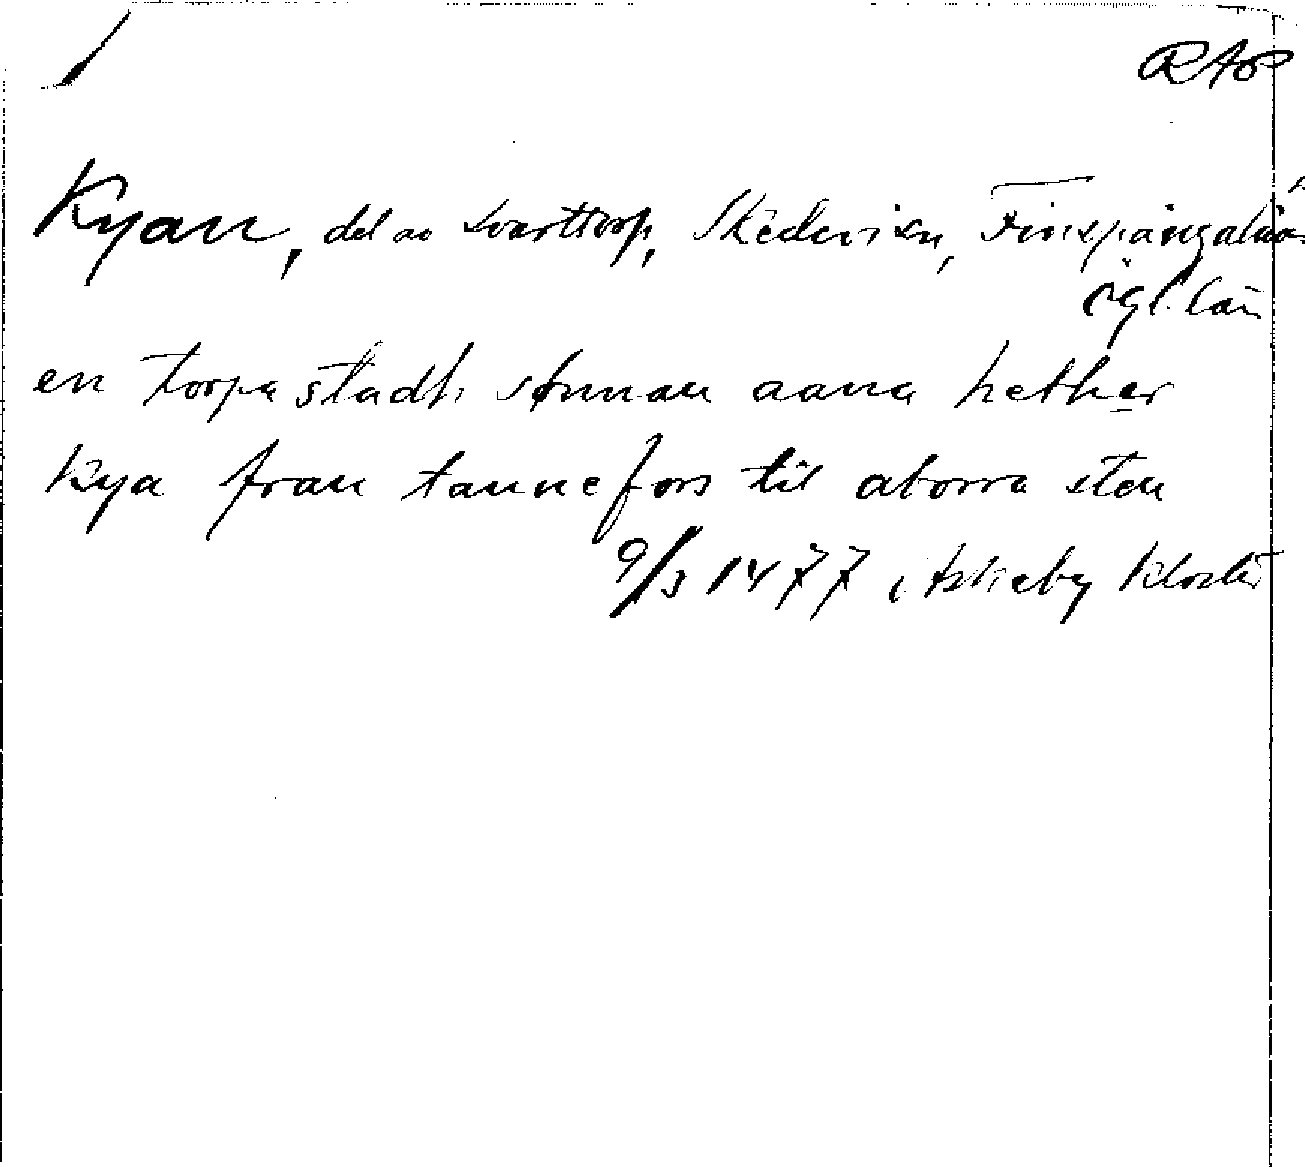 RAP
Kyan, del av Svarttorp, Skedevi sn, Finspångaläns
ögl. län
en torpa stadh sunnan aana hether
kya fran tannefors til aborra sten
9/3 1477 i Askeby kloster